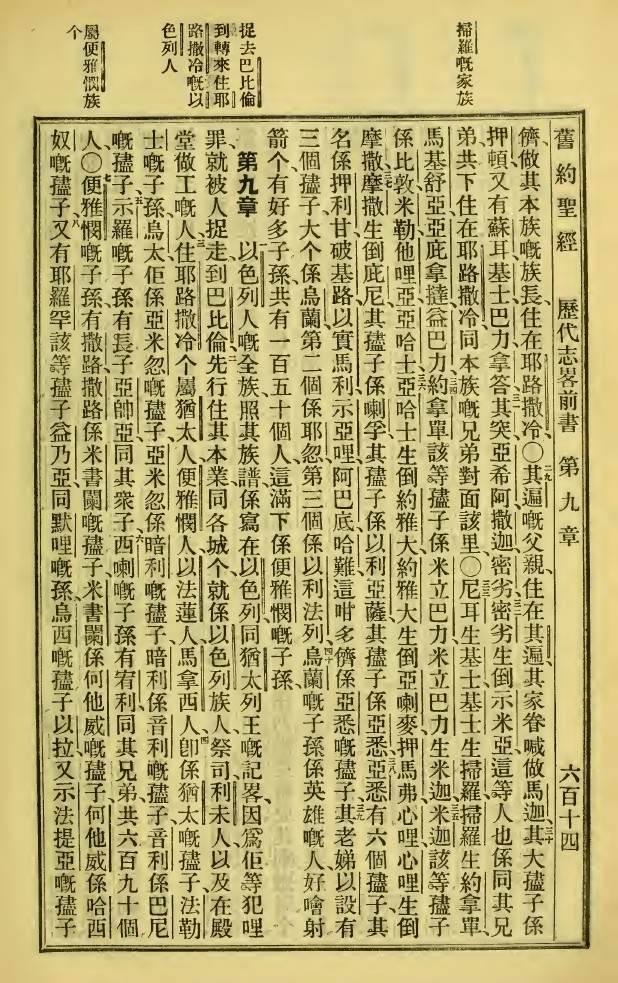 舊約聖經 歷代志畧前書 第九章 六百十四
掃羅嘅家族
捉去巴比倫
到轉來住耶
路撒冷嘅以
色列人
屬便雅憫族
个
儕做其本族嘅族長、住在耶路撒冷、〇二九其遍嘅父親、住在其遍、其家眷喊做馬迦、三十其大孻子係
押頓、又有蘇耳、基士、巴力、拿答、三一其突、亞希阿、撒迦、三二密劣、密劣生倒示米亞、這等人也係同其兄
弟、共下住在耶路撒冷、同本族嘅兄弟對面該里、〇三三尼耳生基士、基士生掃羅、掃羅生約拿單、
馬基舒亞、亞庇拿撻、益巴力、三四約拿單該等孻子、係米立巴力、米立巴力生米迦、三五米迦該等孻子
係比敦、米勒、他哩亞、亞哈士、三六亞哈士生倒約雅大、約雅大生倒亞喇麥、押馬弗、心哩、心哩生倒
摩撒、三七摩撒生倒庇尼、其孻子係喇孚、其孻子係以利亞薩、其孻子係亞悉、三八亞悉有六個孻子、其
名係押利甘、破基路、以實馬利、示亞哩、阿巴底、哈難、這咁多儕係亞悉嘅孻子、三九其老娣以設有
三個孻子、大个係烏蘭、第二個係耶忽、第三個係以利法列、四十烏蘭嘅子孫係英雄嘅人、好噲射
箭个、有好多子孫、共有一百五十個人、這滿下係便雅憫嘅子孫、
第九章 一以色列人嘅全族、照其族譜係寫在以色列同猶太列王嘅記畧、因爲佢等犯哩
罪、就被人捉走到巴比倫、二先行住其本業同各城个、就係以色列族人、祭司、利未人、以及在殿
堂做工嘅人、三住耶路撒冷个、屬猶太人、便雅憫人、以法蓮人、馬拿西人、四卽係猶太嘅孻子、法勒
士嘅子孫、烏太、佢係亞米忽嘅孻子、亞米忽係暗利嘅孻子、暗利係音利嘅孻子、音利係巴尼
嘅孻子、五示羅嘅子孫、有長子亞帥亞、同其衆子、六西喇嘅子孫、有宥利、同其兄弟、共六百九十個
人、〇七便雅憫嘅子孫、有撒路、撒路係米書闌嘅孻子、米書闌係何他威嘅孻子、何他威係哈西
奴嘅孻子、八又有耶羅罕該等孻子益乃亞、同默哩嘅孫、烏西嘅孻子以拉、又示法提亞嘅孻子